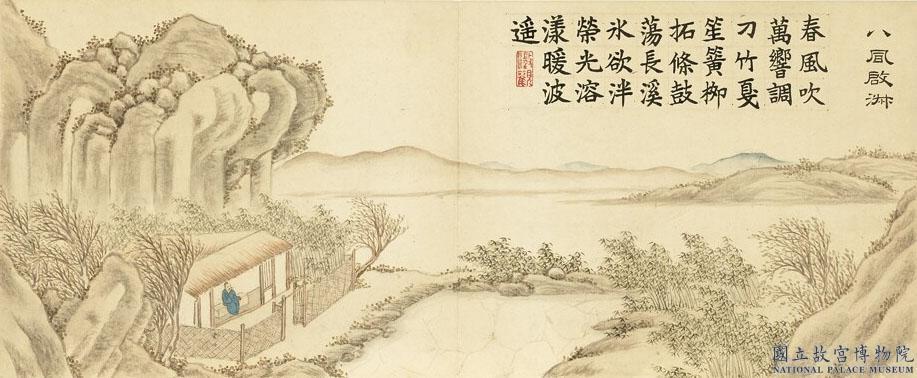 八風啟
春風吹
萬響調
刁竹戛
笙簧栁
拓條鼓
蕩長溪
氷欲泮
榮光溶
漾暖波
遥
國立故宮博物院
NATIONAL PALACE MUSEUM